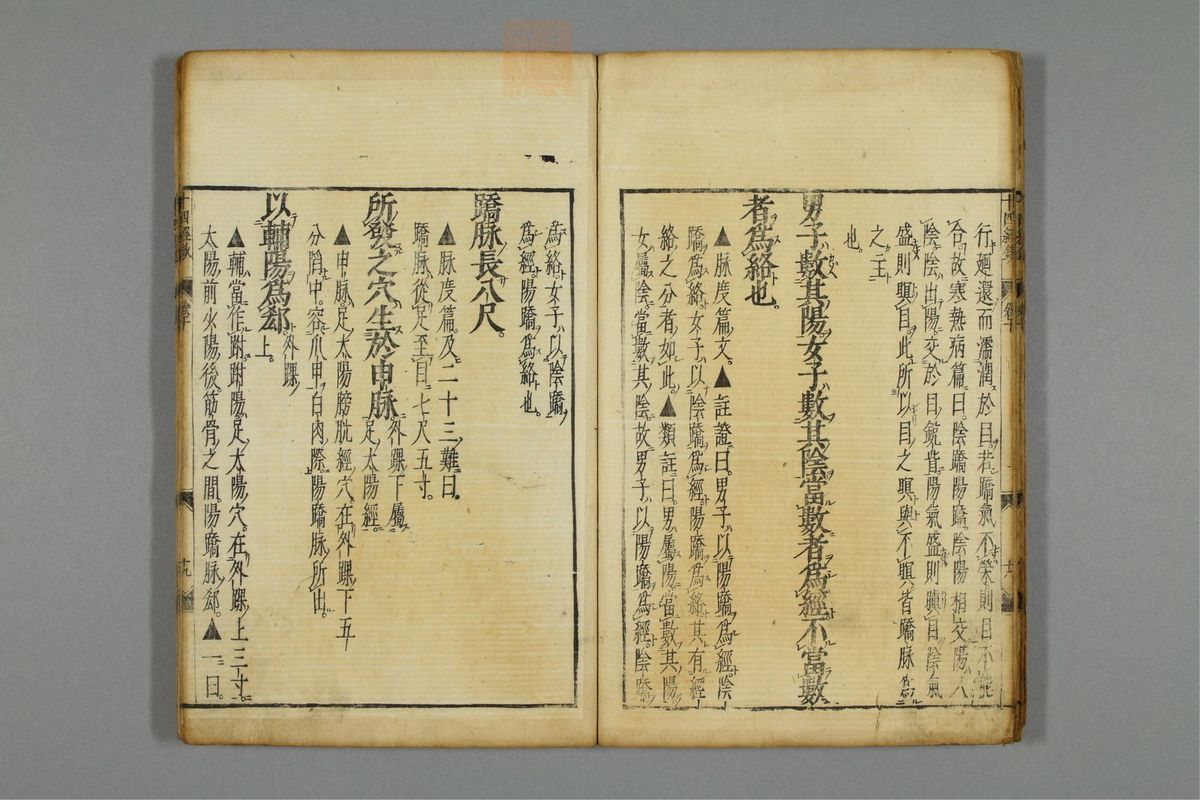 行廻還而濡潤於目若蹻氣不榮則目不能
合故寒熱病篇曰陰蹻陽蹻陰陽相交陽入
陰陰出陽交於目銳眥陽氣盛則瞋目陰氣
盛則瞑目此所以目之瞑與不瞑皆蹻脉爲
之主
也
男子數其陽女子數其陰當數者爲經不當數
者爲絡也
▲脉度篇文▲註證曰男子以陽蹻爲經陰
蹻爲絡女子以陰蹻爲經陽蹻爲絡其有經
絡之分者如此▲類註曰男屬陽當數其陽
女屬陰當數其陰故男子以陽蹻爲經陰蹻
爲絡女子以陰蹻
爲經陽蹻爲絡也
蹻脉長八尺
▲脉度篇及二十三難曰
蹻脉從足至目七尺五寸
所發之穴生於申脉外踝下屬足太陽經
▲申脉足太陽膀胱經穴在外踝下五
分陷中容爪甲白肉際陽蹻脉所出
以輔陽爲郄外踝上
▲輔當作跗跗陽足太陽穴在外踝上三寸
太陽前少陽後筋骨之間陽蹻脉郄▲一曰
十九